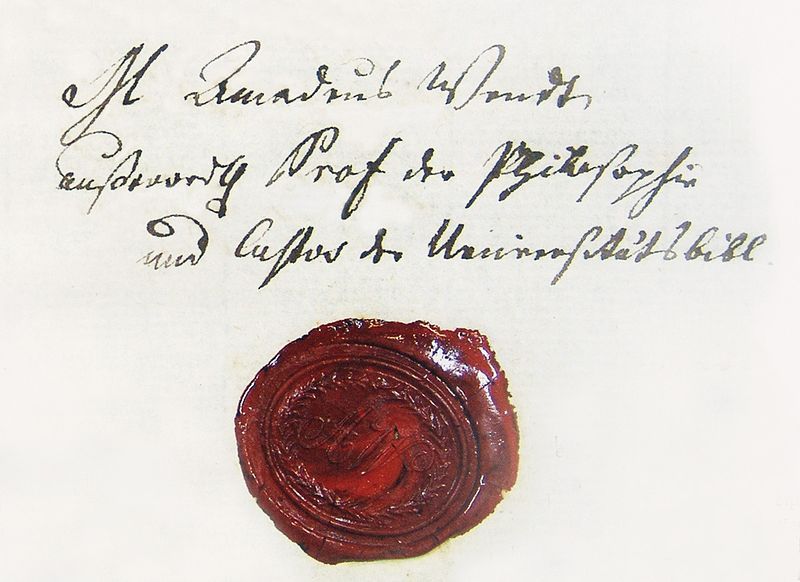 Amadeus Wendt
außerordtl Prof der Philosophie
und Custos der Universitätsbibl.